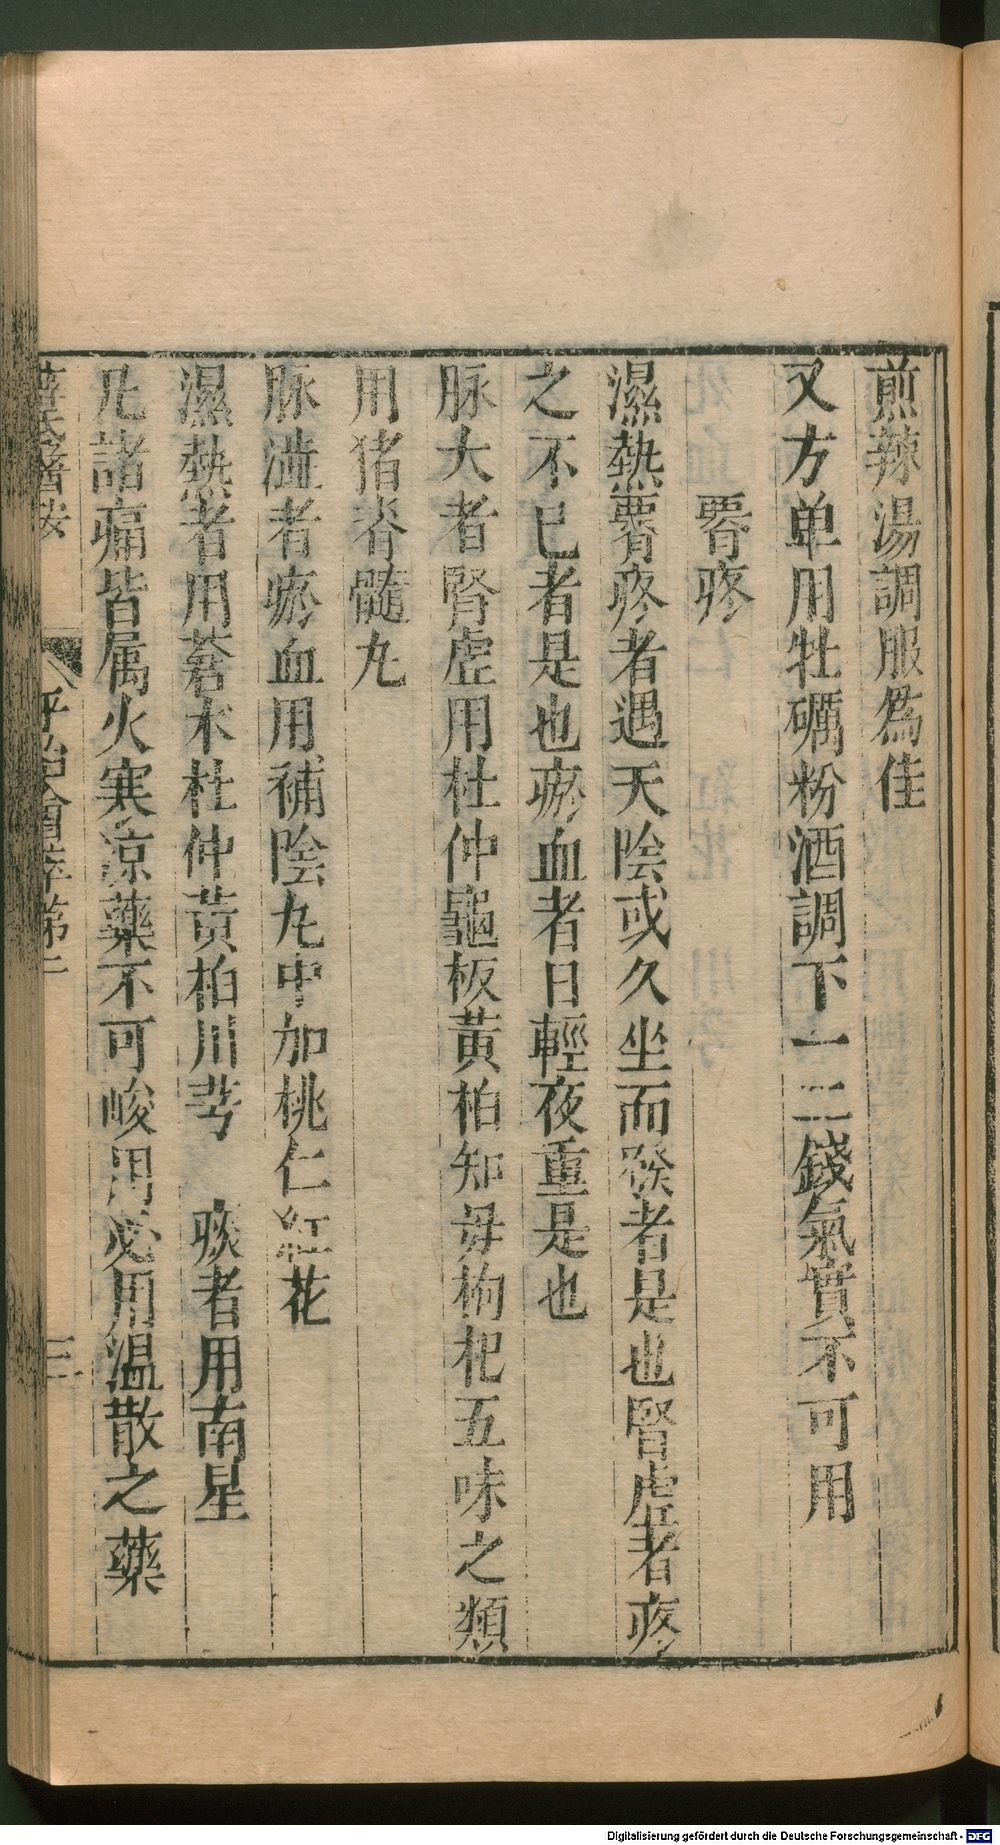 煎辣湯調服為佳
又方单用牡礪粉酒調下一二錢氣實不可用
𦝫疼
濕熱𦝫疼者遇天陰或久坐而發者是也腎虛者疼
之不已者是也瘀血者日輕夜重是也
脉大者腎虛用杜仲龜板黃柏知母枸杞五味之類
用猪脊髓丸
脉濇者瘀血用補陰丸中加桃仁紅花
濕熱者用蒼术杜仲黃柏川芎　痰者用南星
凡諸痛皆属火寒凉藥不可峻用必用温散之藥
薛氏醫按
平治會萃第二
三
Digitalisierung gefördert durch die Deutsche Forschungsgemeinschaft - DFG